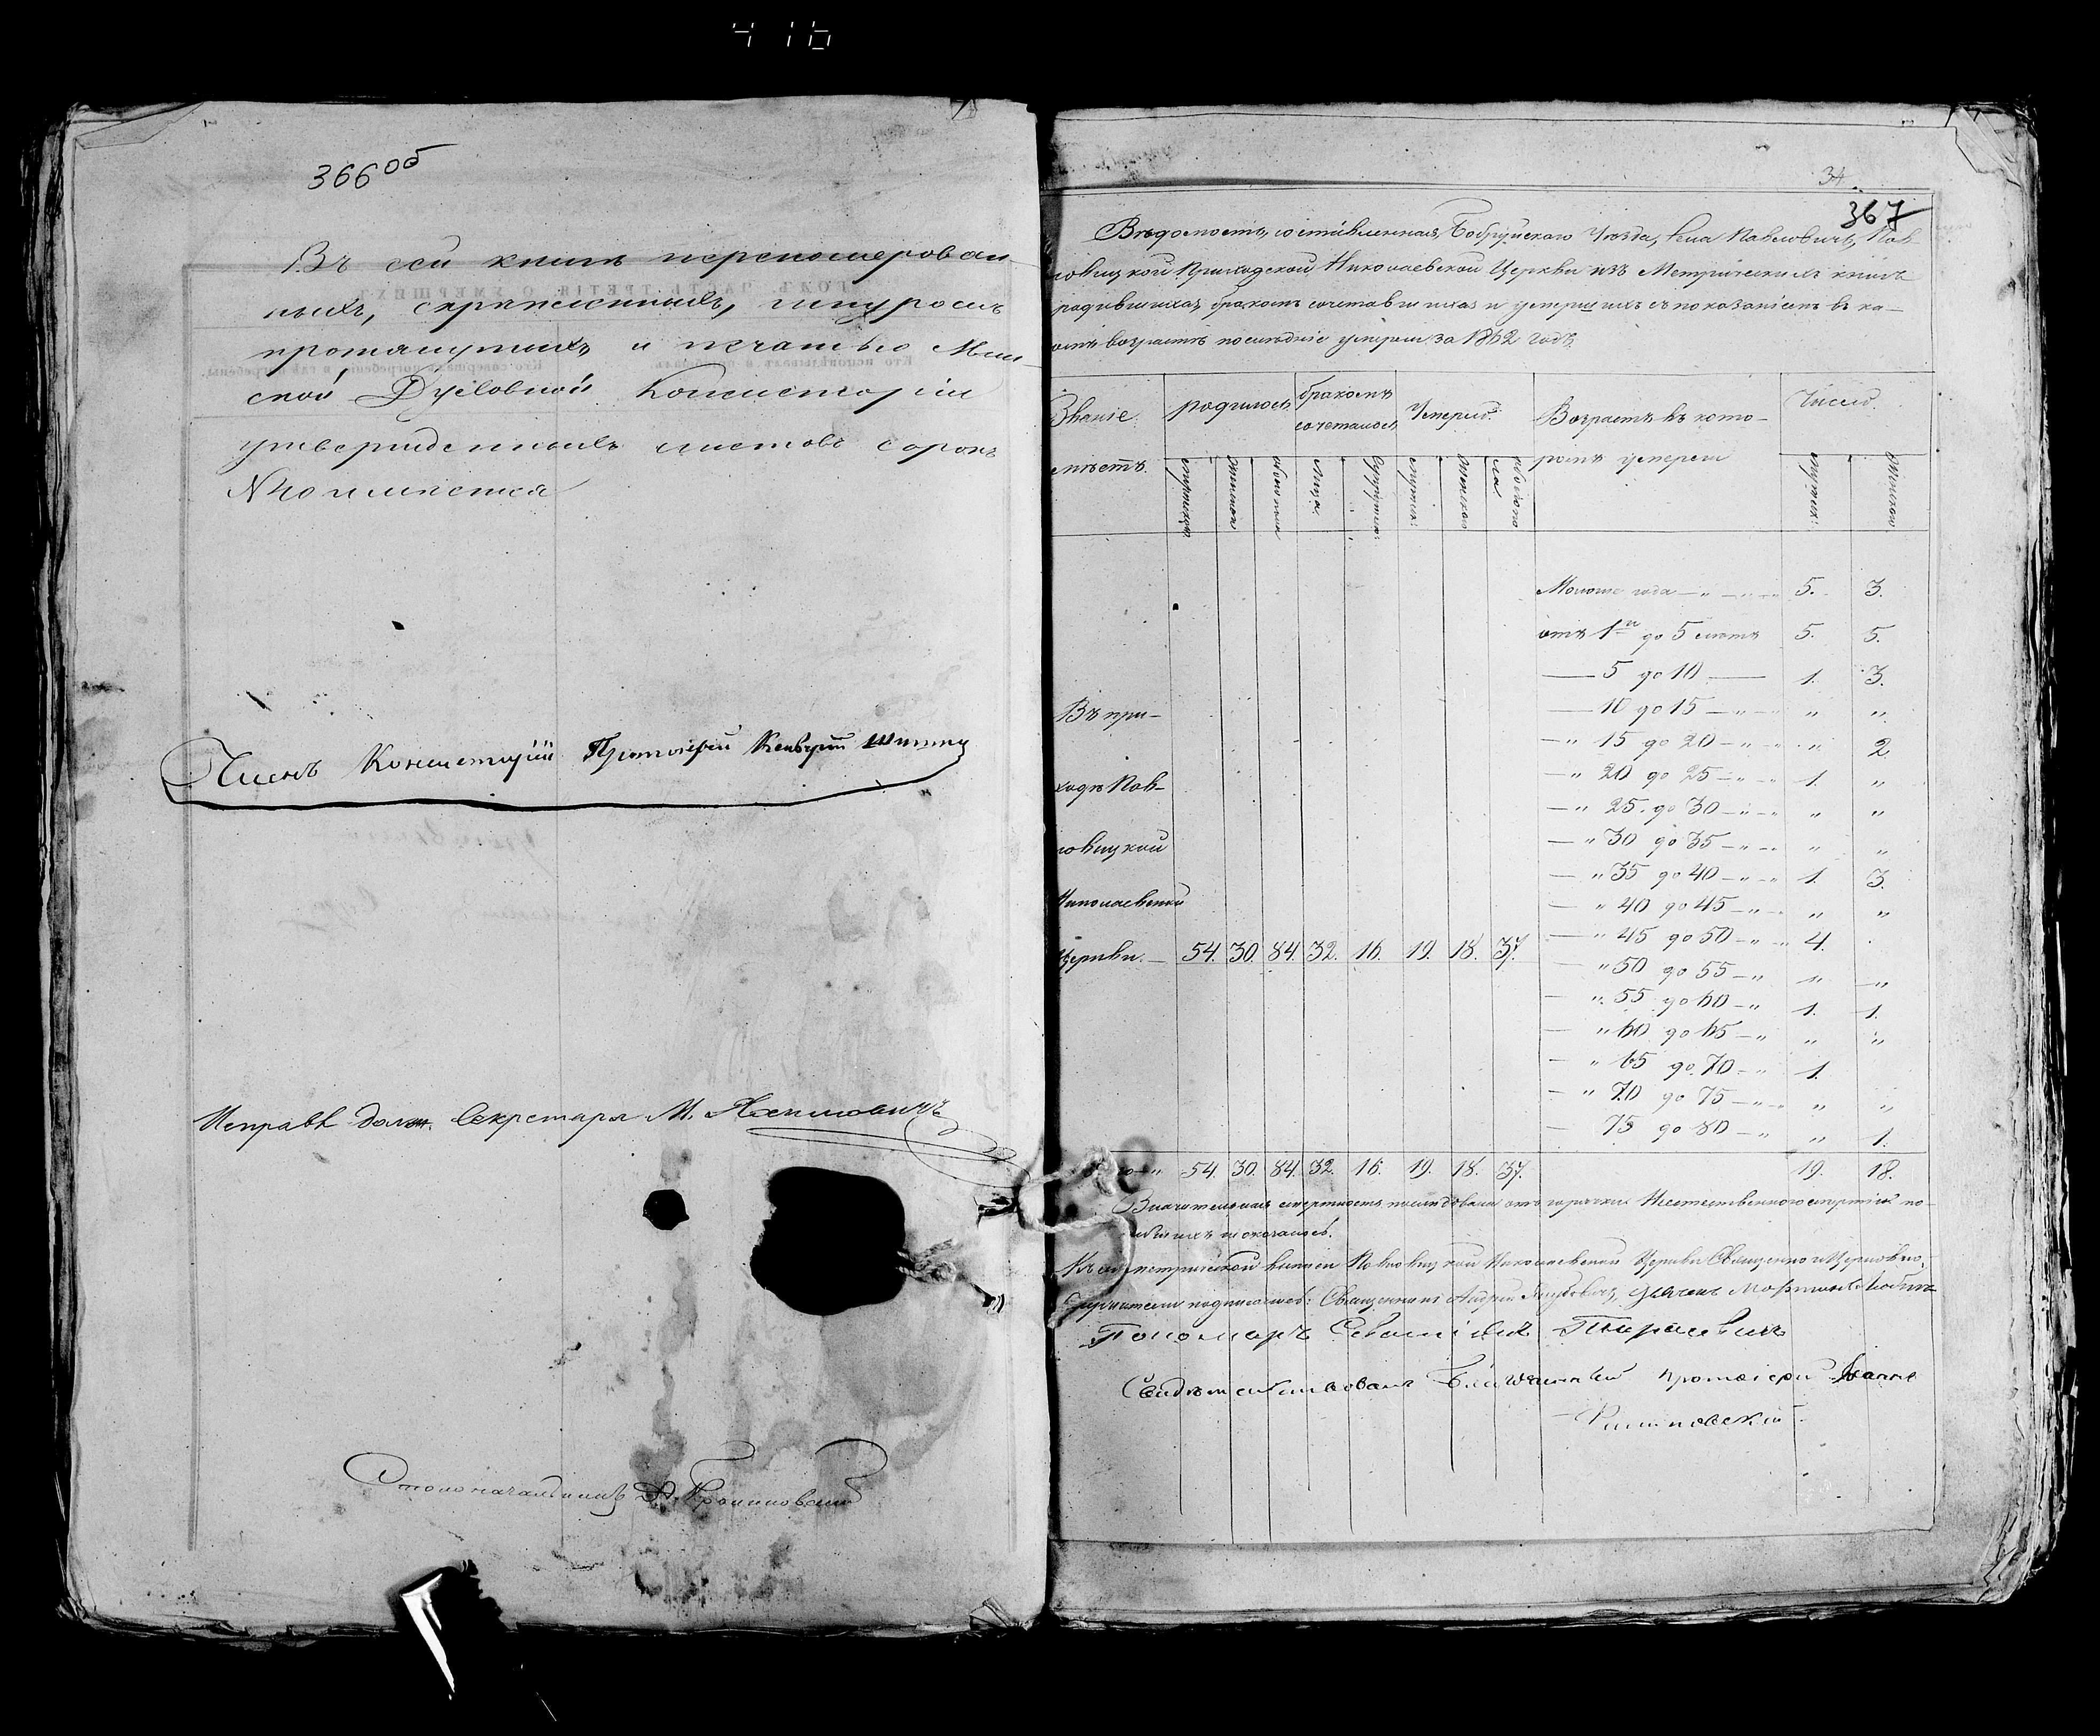 416
366об
Въ сей книгѣ перенумерован
ныхъ, скрѣпленныхъ, шнуромъ
протянутыхъ и печатью Мин
ской Духовной Консисторіи
утвержденныхъ листовъ сорокъ
№40 имѣется
Членъ Консисторіи Протоіерей
Исправл. долж. Секретаря М.
Столоначальникъ
34
367
Вѣдомость, составленная, Бобруйскаго Уѣзда, села Павловичъ, Пав-
ловицкой Приходской Николаевской Церкви изъ Метрическихъ книгъ
родившихся, бракомъ сочетавшихся и умершихъ съ показаніемъ въ ка-
комъ возрастѣ послѣдніе умерли за 1862 годъ.
Званіе мѣстъ.
родилось
бракомъ сочеталось
Умерло.
Возрастъ въ кото-
ромъ умерли
Число.
мужеска женска обоего пола Лицъ Супруж. мужеск. женска обоего пола мужеск. женска
Моложе года — „ — „ 5. 3.
отъ 1го до 5 лѣтъ 5. 5.
— 5 до 10 — 1. 3.
— 10 до 15 — „ „ „
— „ 15 до 20 — „ „ 2
— „ 20 до 25 — „ 1. „
— „ 25 до 30 — „ „ „
— „ 30 до 35 — „ „ „
— „ 35 до 40 — „ 1. 3.
— „ 40 до 45 — „ „ „
— „ 45 до 50 — „ 4.
— „ 50 до 55 — „ „ „
— „ 55 до 60 — „ 1. 1.
— „ 60 до 65 — „ „ „
— „ 65 до 70 — „ 1.
— „ 70 до 75 — „ „ „
— 75 до 80 — „ „ 1.
Въ при-
ходѣ Пав-
ловицкой
Николаевской
Церкви. — 54. 30. 84. 32. 16. 19. 18. 37.
54. 30. 84. 32. 16. 19. 18. 37. 19. 18.
Значительная смертность послѣдовала отъ горячки Неестественною смертію по-
гибшихъ не оказалось.
Къ сей метрической книгѣ Павловицкой Николаевской Церкви Священно и Церковно-
Служители подписались: Священникъ Андрей
Пономарь Севастіанъ Тарасевичъ
Свидѣтельствовалъ Благочинный протоіерей Іоаннъ